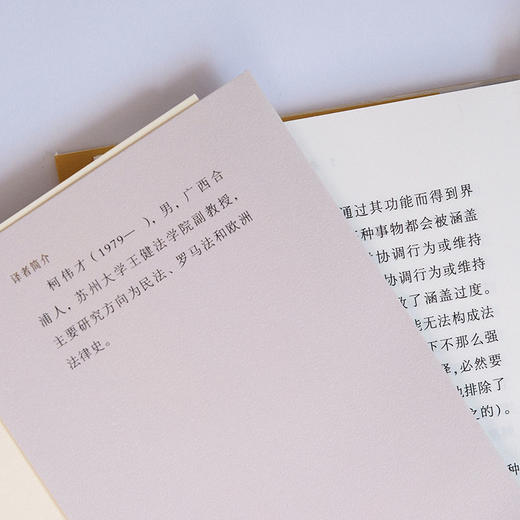 译者简介
柯伟才（1979— ），男，广西合
浦人，苏州大学王健法学院副教授，
主要研究方向为民法、罗马法和欧洲
法律史。
通过其功能而得到界
种事物都会被涵盖
协调行为或维持
协调行为或维持
了涵盖过度。
能无法构成法
下不那么强
释，必然要
也排除了
之的）。
种